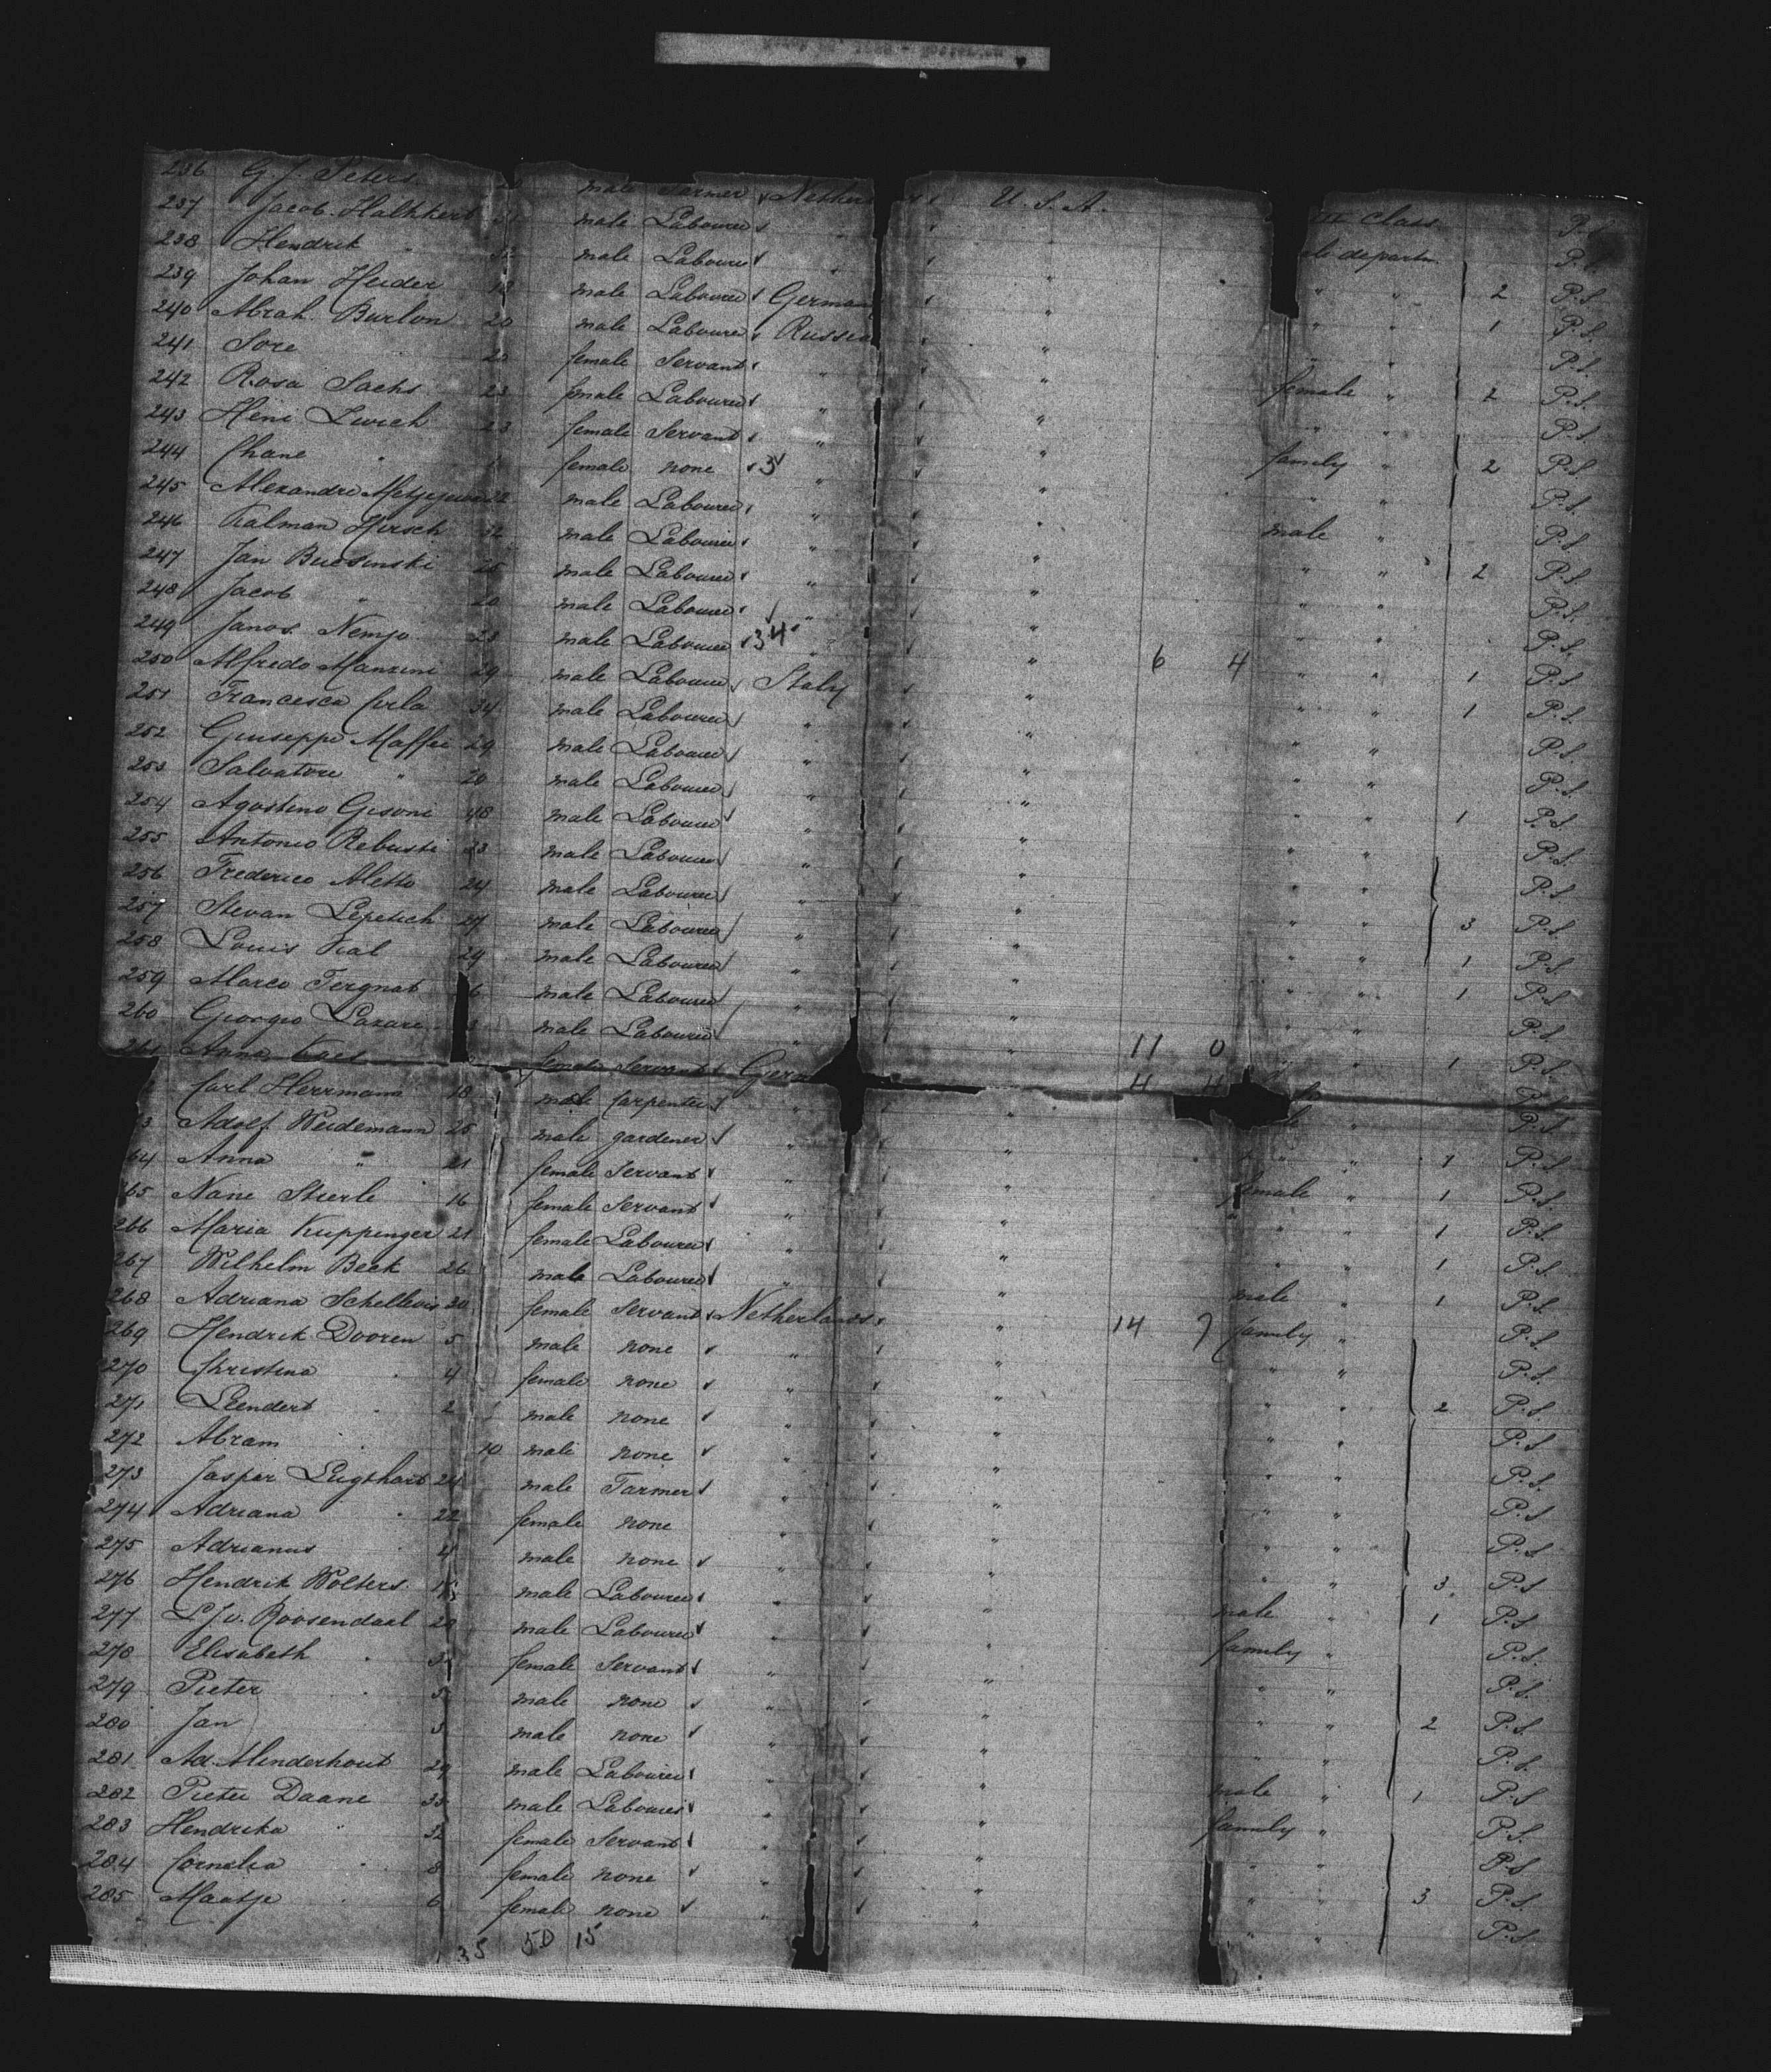 236 G. J. Peters male Farmer Nether U. S. A. III Class P.S.
237 Jacob. male Labourer " departm. P.S.
238 Hendrik " 32 male Labourer " " " " 2 P.S.
239 Johan Heider 18 male Labourer German " " " 1 P.S.
240 Abrah. Burlon 20 male Labourer Russia " " " P.S.
241 Sore " 20 female Servant " " female " 2 P.S.
242 Rosa Sachs 23 female Labourer " " " " P.S.
243 Heni 23 female Servant " " family " 2 P.S.
244 Chane " female none 3 " " " " P.S.
245 Alexandre male Labourer " " male " P.S.
246 Kalman Hirsch 32 male Labourer " " " " 2 P.S.
247 Jan 25 male Labourer " " " " P.S.
248 Jacob " 20 male Labourer " " " " P.S.
249 Janos Nemjo 23 male Labourer 34 " " 6 4 " " 1 P.S.
250 Alfredo Manzini 29 male Labourer Italy " " " 1 P.S.
251 Francesco 34 male Labourer " " " " P.S.
252 Giuseppe Maffei 29 male Labourer " " " " P.S.
253 Salvatore " 20 male Labourer " " " " 1 P.S.
254 Agostino Gisoni 48 male Labourer " " " " P.S.
255 Antonio Rebusti 23 male Labourer " " " " P.S.
256 Frederico Aletto 24 male Labourer " " " " 3 P.S.
257 Stevan Lepetich 27 male Labourer " " " " 1 P.S.
258 Louis Kal 29 male Labourer " " " " 1 P.S.
259 Marco Tergnat 6 male Labourer " " " " P.S.
260 Giorgio Lazari male Labourer " " 11 0 " " 1 P.S.
261 Anna female Servant Ger 4 4 P.S.
Carl Herrmann 18 male Carpenter " " " P.S.
3 Adolf Weidemann 25 male gardener " " " " 1 P.S.
64 Anna " 21 female Servant " " female " 1 P.S.
65 Nane Stierle 16 female Servant " " " " 1 P.S.
266 Maria Kuppinger 21 female Labourer " " " " 1 P.S.
267 Wilhelm Beck 26 male Labourer " " male " 1 P.S.
268 Adriana Schellevis 30 female Servant Netherlands " 14 7 family " P.S.
269 Hendrik Dooren 5 male none " " " " P.S.
270 Christina " 4 female none " " " " 2 P.S.
271 Leendert " 2 male none " " " " P.S.
272 Abram " 10 male none " " " " P.S.
273 Jasper Lugthart 24 male Farmer " " " " P.S.
274 Adriana " 22 female none " " " " P.S.
275 Adrianus " 4 male none " " " " 3 P.S.
276 Hendrik Wolters male Labourer " " male " 1 P.S.
277 L.J.v. Roosendaal 28 male Labourer " " family " P.S.
278 Elisabeth " female Servant " " " " P.S.
279 Pieter " 5 male none " " " " 2 P.S.
280 Jan " 3 male none " " " " P.S.
281 Ad. Menderhout 29 male Labourer " " male " 1 P.S.
282 Pieter Daane 35 male Labourer " " family " P.S.
283 Hendrika " 32 female Servant " " " " P.S.
284 Cornelia " 8 female none " " " " 3 P.S.
285 Maatje " 6 female none " " " " P.S.
35 50 15